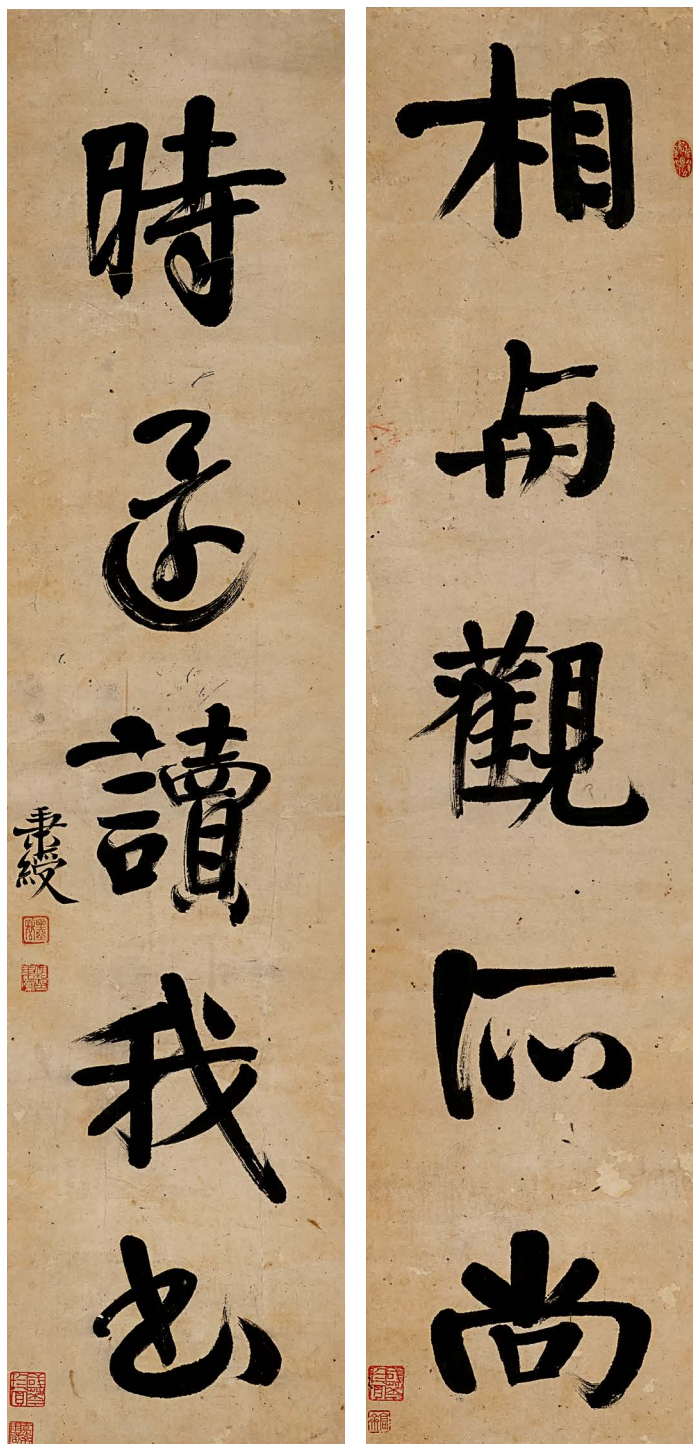 相與觀所尚
時還讀我書
秉綬